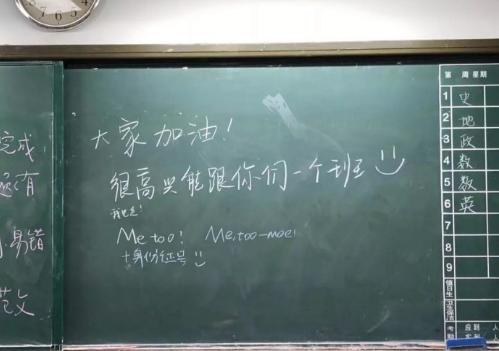 完成
有
易错
范文
大家加油！
很高兴能跟你们一个班
我也是！
Me too! Me, too~moe!
+身份证号
第 周 星期
1 史
2 地
3 政
4 数
5 数
6 英
7
8
9
值日生
考 应到 人